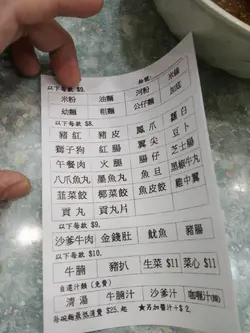 以下每款$9.
米粉 油麵 河粉 米線
幼麵 粗麵 公仔麵
以下每款 $8.
豬紅 豬皮 鳳爪 蘿白
獅子狗 紅腸 翼尖 豆卜
午餐肉 火腿 雞仔 芝士腸
八爪魚丸 墨魚丸 魚旦 黑椒牛丸
韮菜餃 椰菜餃 魚皮餃 雞中翼
貢丸 貢丸片
以下每款 $9.
沙爹牛肉 金錢肚 魷魚 豬腸
以下每款 $10.
牛腩 豬扒 生菜 $11 菜心 $11
自選汁類(免費)
清湯 牛腩汁 沙爹汁 咖喱汁
每碗麵最低消費 $25.起 ★另加醬汁+$2.